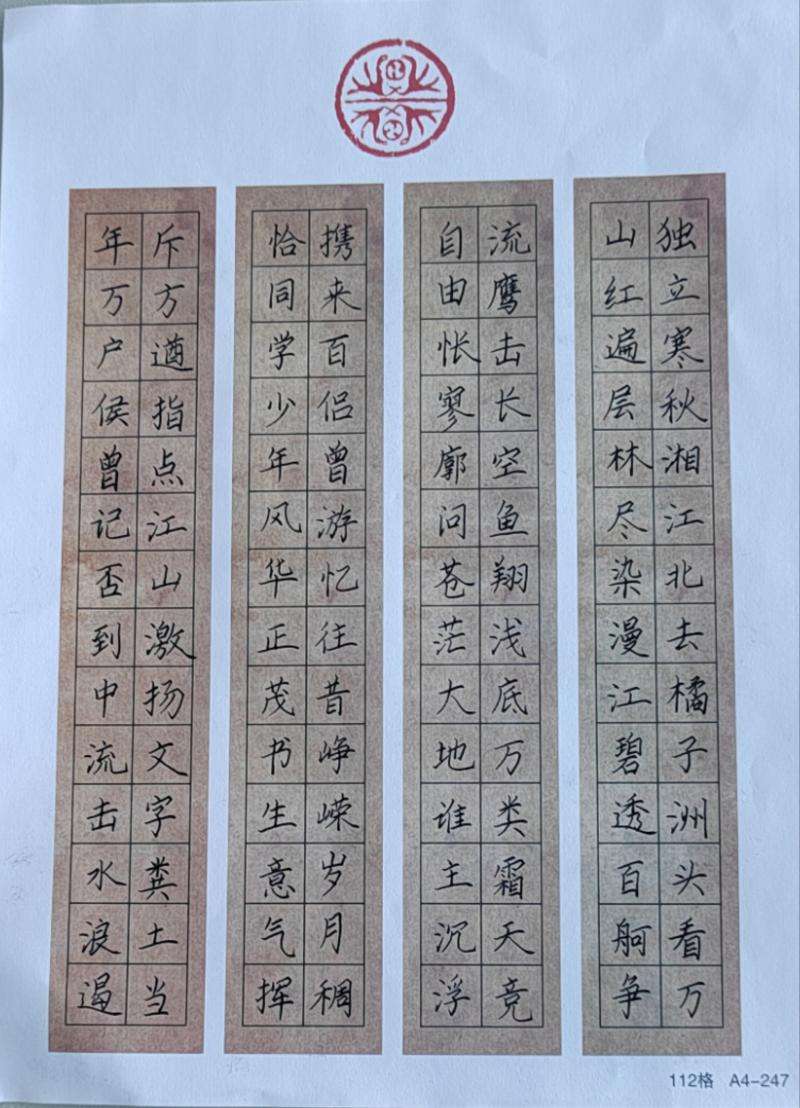 独立寒秋湘江北去橘子洲头看万
山红遍层林尽染漫江碧透百舸争
流鹰击长空鱼翔浅底万类霜天竞
自由怅寥廓问苍茫大地谁主沉浮
携来百侣曾游忆往昔峥嵘岁月稠
恰同学少年风华正茂书生意气挥
斥方遒指点江山激扬文字粪土当
年万户侯曾记否到中流击水浪遏
112格 A4-247